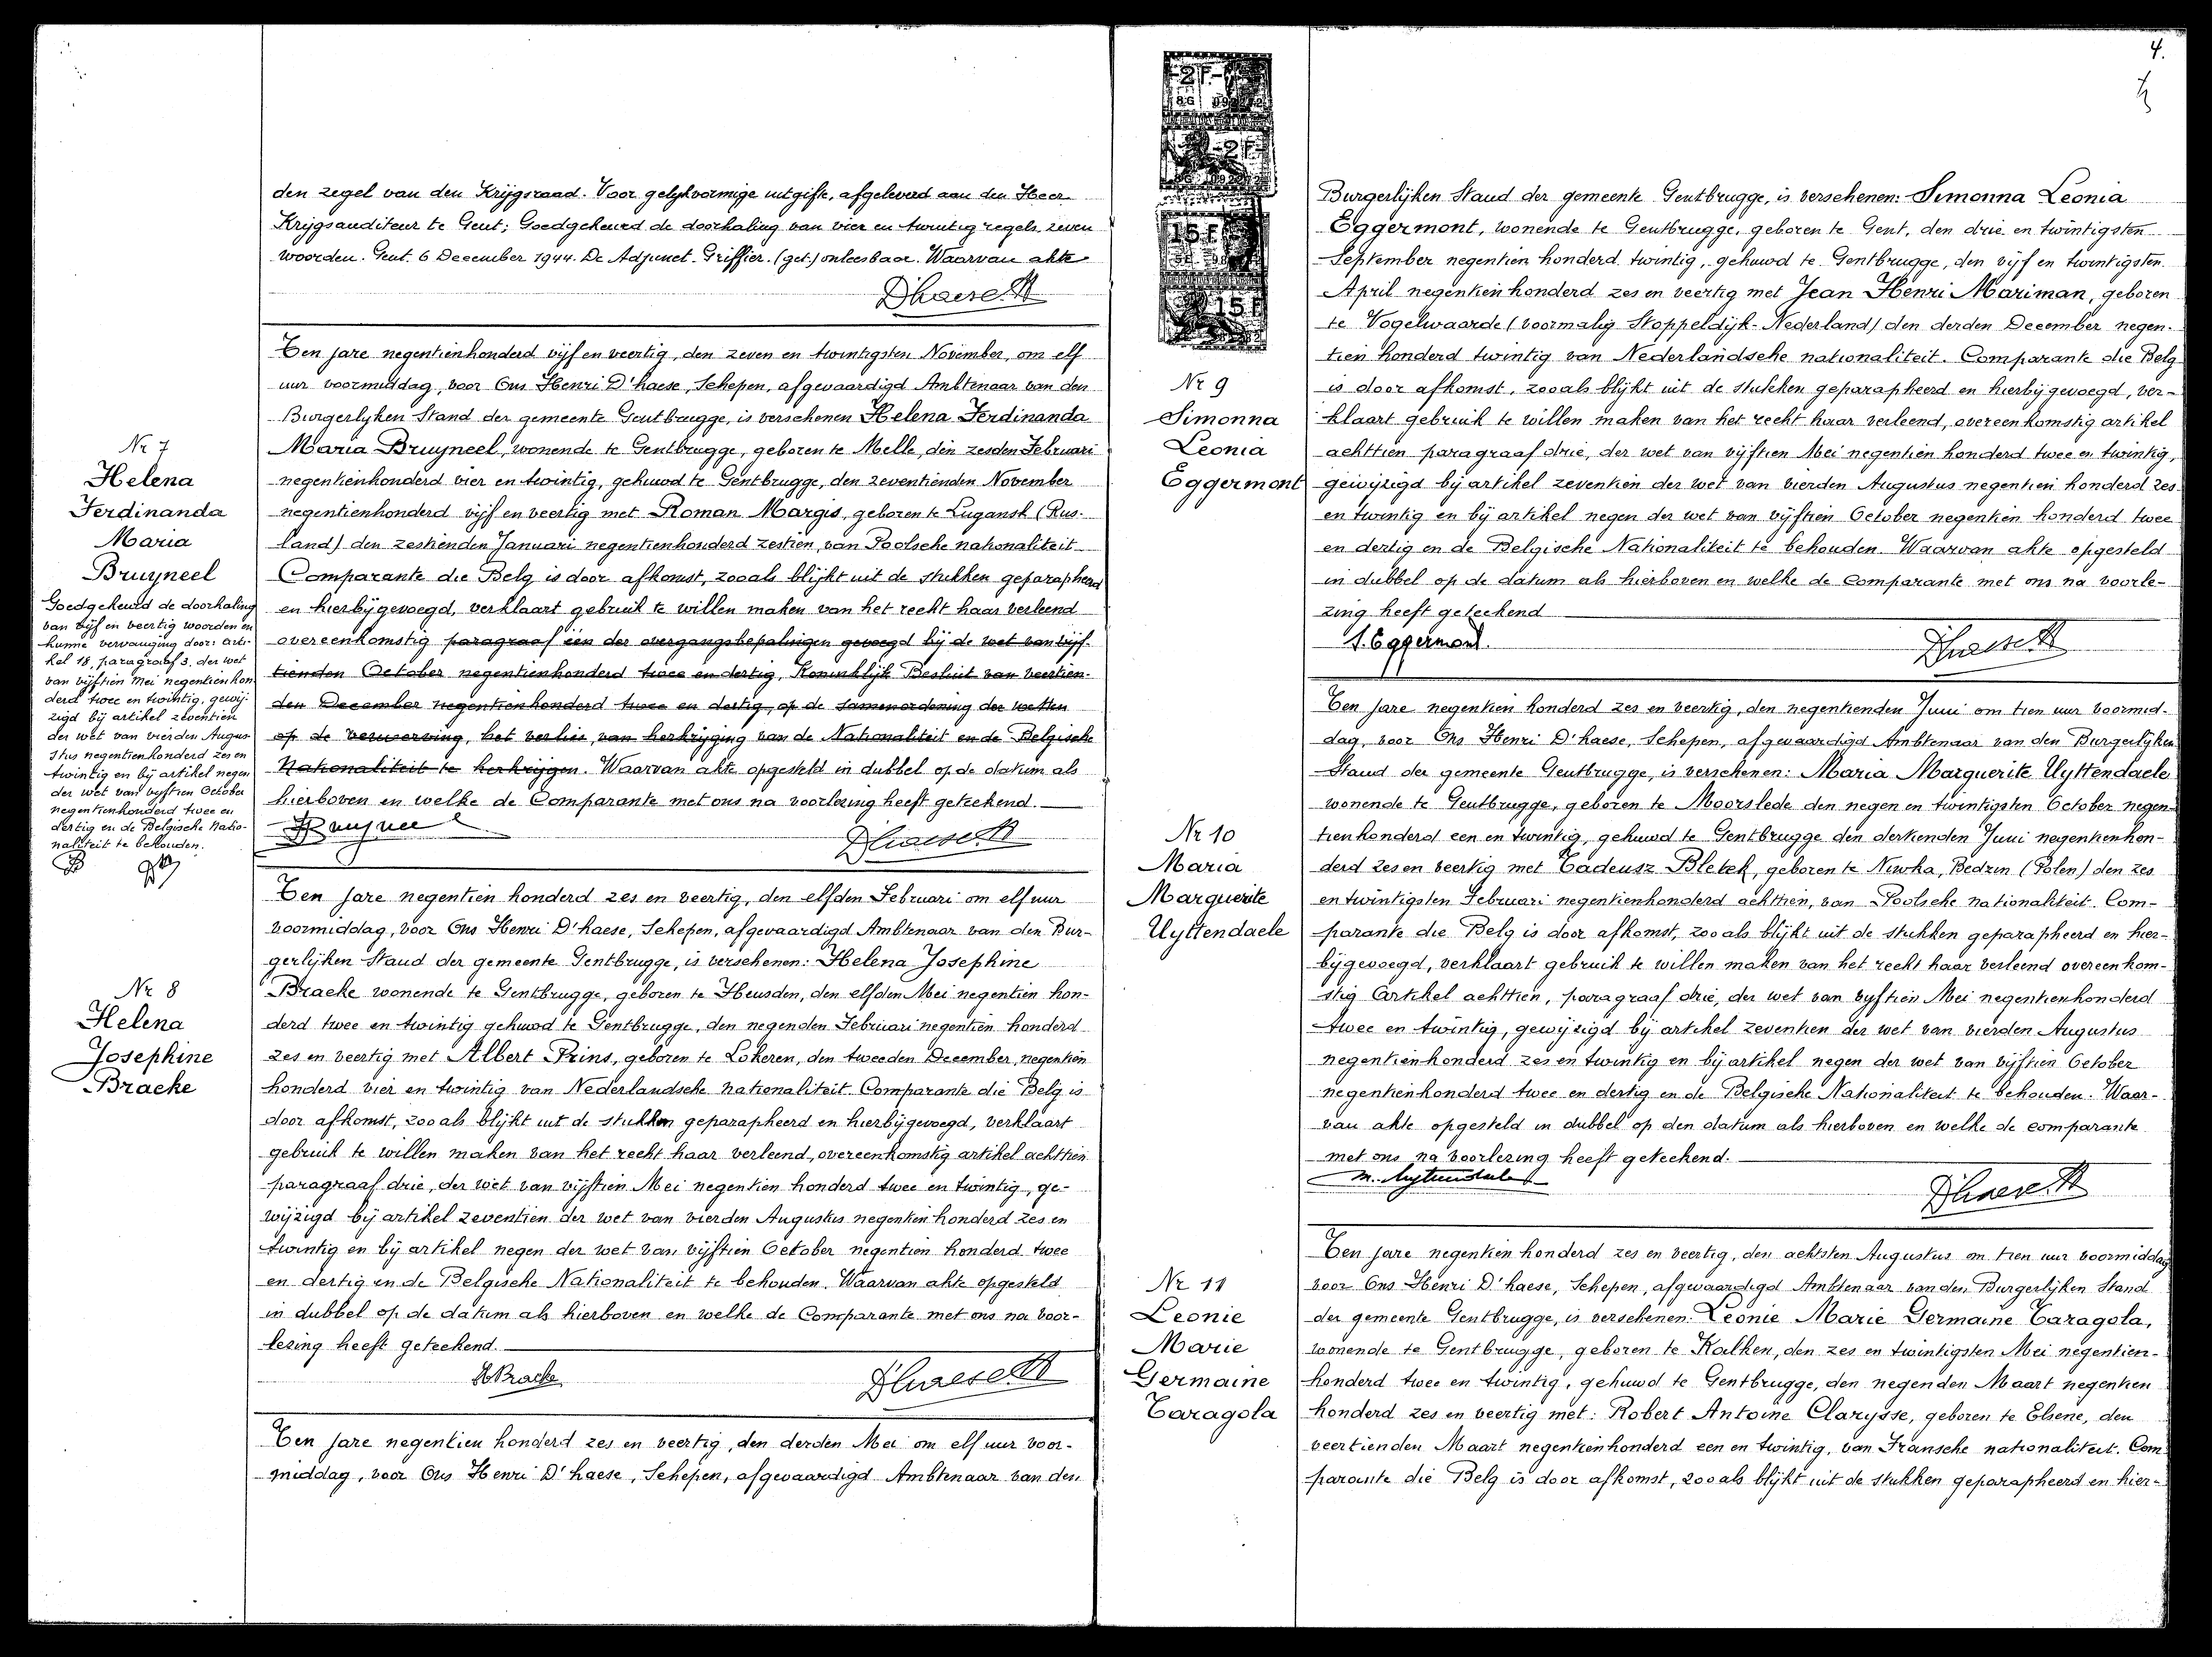 den zegel van den Krijgsraad. Voor gelijkvormige uitgifte, afgeleverd aan den Heer
Krijgsauditeur te Gent; Goedgekeurd de doorhaling van vier en twintig regels zeven
woorden. Gent. 6 December 1944. De Adjunct-Griffier. (get.) onleesbaar. Waarvan akte
Dhaese H
Nr 7
Helena
Ferdinanda
Maria
Bruyneel
Goedgekeurd de doorhaling
van vijf en veertig woorden en
hunne vervanging door: arti-
kel 18, paragraaf 3, der wet
van vijftien Mei negentien hon
derd twee en twintig, gewij-
zigd bij artikel zeventien
der wet van vierden Augus-
stus negentienhonderd zes en
twintig en bij artikel negen
der wet van vijftien October
negentienhonderd twee en
dertig en de Belgische Natio-
naliteit te behouden.
Ten jare negentienhonderd vijf en veertig, den zeven en twintigsten November, om elf
uur voormiddag, voor Ons Henri D'haese, Schepen, afgevaardigd Ambtenaar van den
Burgerlyken Stand der gemeente Gentbrugge, is verschenen Helena Ferdinanda
Maria Bruyneel, wonende te Gentbrugge, geboren te Melle, den zesden Februari
negentienhonderd vier en twintig, gehuwd te Gentbrugge, den zeventienden November
negentienhonderd vijf en veertig met Roman Margis, geboren te Lugansk (Rus-
land) den zestienden Januari negentienhonderd zestien, van Poolsche nationaliteit
Comparante die Belg is door afkomst, zooals blijkt uit de stukken geparapheerd
en hierbijgevoegd, verklaart gebruik te willen maken van het recht haar verleend
overeenkomstig paragraaf één der overgangsbepalingen gevoegd bij de wet van vijf-
tienden October negentienhonderd twee en dertig, Koninklijk Besluit van veertien-
den December negentienhonderd twee en dertig, op de samenordening der wetten
op de verwerving, het verlies, van herkrijging van de Nationaliteit en de Belgische
Nationaliteit te herkrijgen. Waarvan akte opgesteld in dubbel op de datum als
hierboven en welke de Comparante met ons na voorlezing heeft geteekend.
Bruyneel
Dhaese H
Nr 8
Helena
Josephine
Bracke
Ten jare negentien honderd zes en veertig, den elfden Februari om elf uur
voormiddag, voor Ons Henri D'haese, Schepen, afgevaardigd Ambtenaar van den Bur-
gerlijken Stand der gemeente Gentbrugge, is verschenen: Helena Josephine
Bracke wonende te Gentbrugge, geboren te Heusden, den elfden Mei negentien hon-
derd twee en twintig gehuwd te Gentbrugge, den negenden Februari negentien honderd
zes en veertig met Albert Prins, geboren te Lokeren, den tweeden December, negentien
honderd vier en twintig van Nederlandsche nationaliteit. Comparante die Belg is
door afkomst, zooals blijkt uit de stukken geparapheerd en hierbijgevoegd, verklaart
gebruik te willen maken van het recht haar verleend, overeenkomstig artikel achttien
paragraaf drie, der wet van vijftien Mei negentien honderd twee en twintig, ge-
wijzigd bij artikel zeventien der wet van vierden Augustus negentien honderd zes en
twintig en bij artikel negen der wet van vijftien October negentien honderd twee
en dertig en de Belgische Nationaliteit te behouden. Waarvan akte opgesteld
in dubbel op de datum als hierboven en welke de Comparante met ons na voor-
lezing heeft geteekend.
H Bracke
Dhaese H
Ten jare negentien honderd zes en veertig, den derden Mei om elf uur voor-
middag, voor Ons Henri D'haese, Schepen, afgevaardigd Ambtenaar van den
4.
2 F.
2 F
15 F
15 F
Nr 9
Simonna
Leonia
Eggermont
Burgerlijken Stand der gemeente Gentbrugge, is verschenen: Simonna Leonia
Eggermont, wonende te Gentbrugge, geboren te Gent, den drie en twintigsten
September negentien honderd twintig, gehuwd te Gentbrugge, den vijf en twintigsten
April negentien honderd zes en veertig met Jean Henri Mariman, geboren
te Vogelwaarde (voormalig Stoppeldijk-Nederland) den derden December negen-
tien honderd twintig van Nederlandsche nationaliteit. Comparante die Belg
is door afkomst, zooals blijkt uit de stukken geparapheerd en hierbijgevoegd, ver-
klaart gebruik te willen maken van het recht haar verleend, overeenkomstig artikel
achttien paragraaf drie, der wet van vijftien Mei negentien honderd twee en twintig,
gewijzigd bij artikel zeventien der wet van vierden Augustus negentien honderd zes
en twintig en bij artikel negen der wet van vijftien October negentien honderd twee
en dertig en de Belgische Nationaliteit te behouden. Waarvan akte opgesteld
in dubbel op de datum als hierboven en welke de Comparante met ons na voorle-
zing heeft geteekend
S. Eggermont.
Dhaese H
Nr 10
Maria
Marguerite
Uyttendaele
Ten jare negentien honderd zes en veertig, den negentienden Juni om tien uur voormid-
dag, voor Ons Henri D'haese, Schepen, afgevaardigd Ambtenaar van den Burgerlijken
Stand der gemeente Gentbrugge, is verschenen: Maria Marguerite Uyttendaele
wonende te Gentbrugge, geboren te Moorslede den negen en twintigsten October negen-
tienhonderd een en twintig, gehuwd te Gentbrugge den dertienden Juni negentienhon-
derd zes en veertig met Tadeusz Bletek, geboren te Niwka, Bedzin (Polen) den zes
en twintigsten Februari negentienhonderd achttien, van Poolsche nationaliteit. Com-
parante die Belg is door afkomst, zooals blijkt uit de stukken geparapheerd en hier-
bijgevoegd, verklaart gebruik te willen maken van het recht haar verleend overeenkom-
stig Artikel achttien, paragraaf drie, der wet van vijftien Mei negentienhonderd
twee en twintig, gewijzigd bij artikel zeventien der wet van vierden Augustus
negentienhonderd zes en twintig en bij artikel negen der wet van vijftien October
negentienhonderd twee en dertig en de Belgische Nationaliteit te behouden. Waar-
van akte opgesteld in dubbel op den datum als hierboven en welke de comparante
met ons na voorlezing heeft geteekend.
M. Uyttendaele
Dhaese H
Nr 11
Leonie
Marie
Germaine
Taragola
Ten jare negentien honderd zes en veertig, den achtsten Augustus om tien uur voormiddag
voor Ons Henri D'haese, Schepen, afgevaardigd Ambtenaar van den Burgerlijken Stand
der gemeente Gentbrugge, is verschenen: Leonie Marie Germaine Taragola,
wonende te Gentbrugge, geboren te Kalken, den zes en twintigsten Mei negentien-
honderd twee en twintig, gehuwd te Gentbrugge, den negenden Maart negentien
honderd zes en veertig met: Robert Antoine Clarysse, geboren te Elsene, den
veertienden Maart negentienhonderd een en twintig, van Fransche nationaliteit. Com
parante die Belg is door afkomst, zooals blijkt uit de stukken geparapheerd en hier-